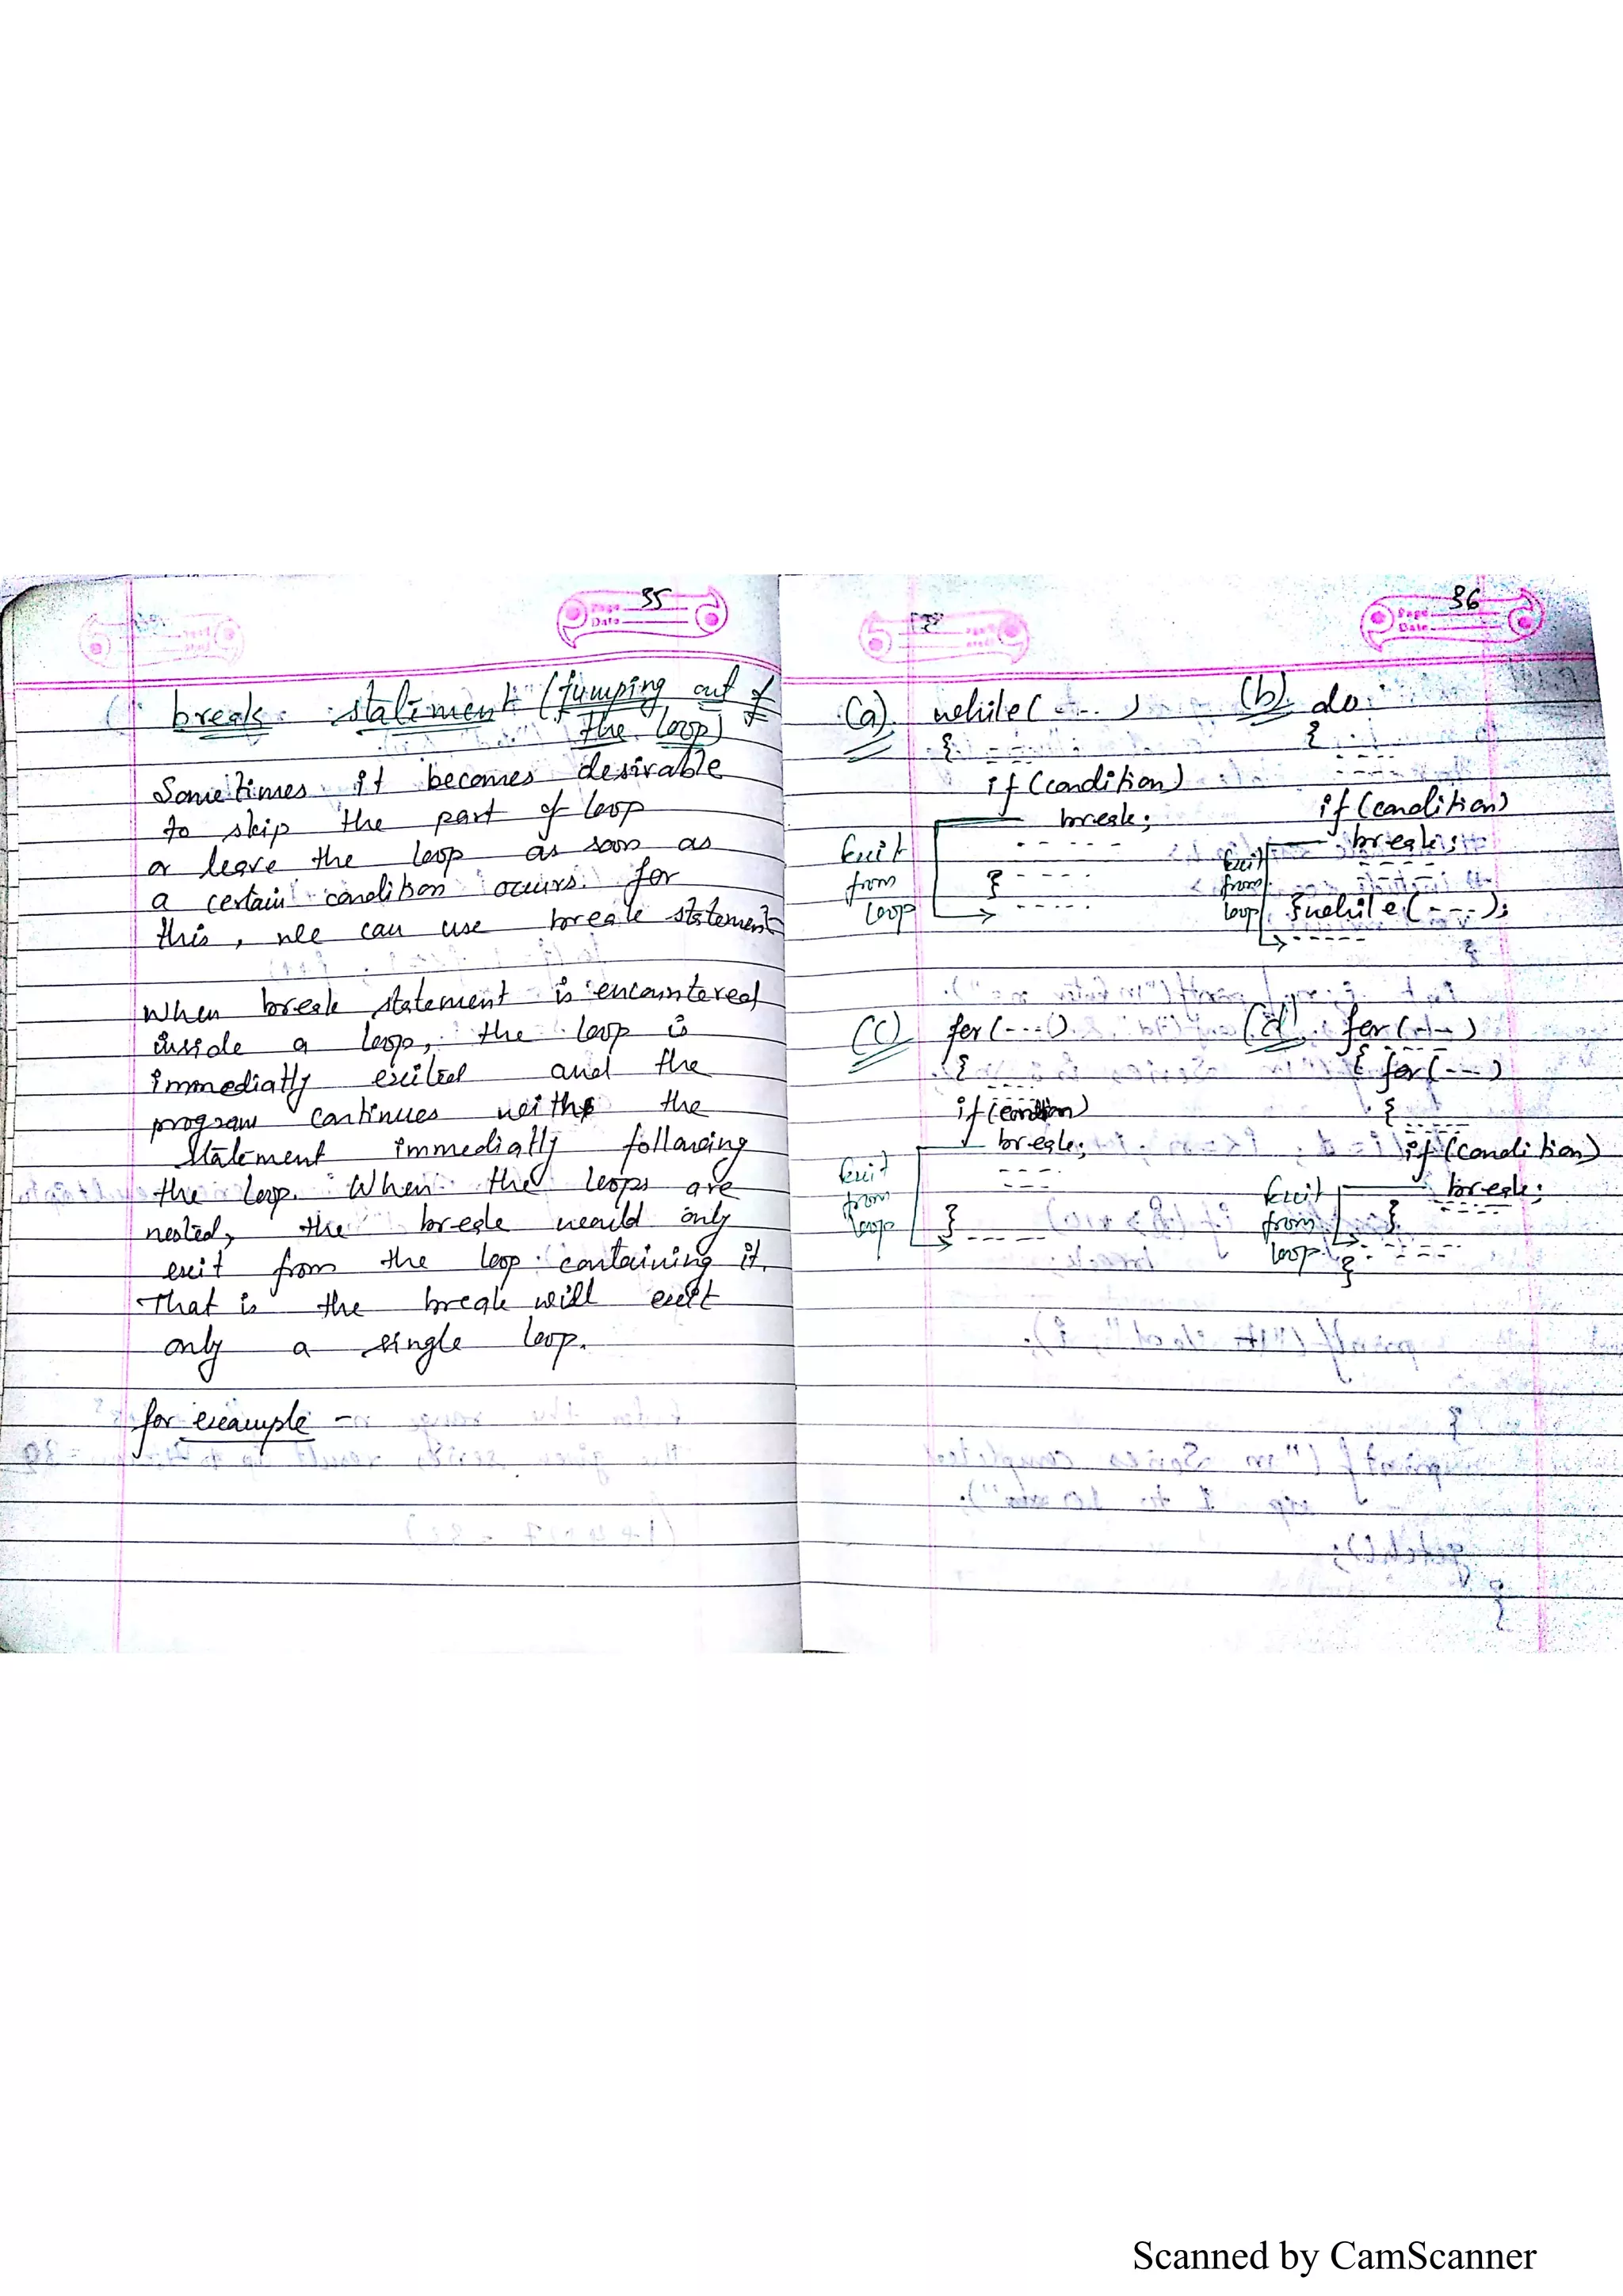 Page 35
Date
break statement (Jumping out of
the loop)
Sometimes it becomes desirable
to skip the part of loop
or leave the loop as soon as
a certain condition occurs. for
this, we can use break statement
When break statement is encountered
inside a loop, the loop is
immediatly exited and the
program continues with the
statement immediatly following
the loop. When the loops are
nested, the break would only
exit from the loop containing it.
That is the break will exit
only a single loop.
for example -
Page 36
Date
(a) while( - - - )
{ - - - -
if (condition)
break;
- - - - -
} - - - -
- - - - -
Exit
from
loop
(b) do
{
- - - -
if (condition)
break;
- - - -
}while(- - -);
- - - - -
Exit
from
loop
(c) for(- - - -)
{ - - - -
if(condition)
break;
- - -
}
- - - - -
Exit
from
loop
(d) for(- - -)
{ - - - -
for(- - -)
{ - - - -
if (condition)
break;
- - - -
}
- - - - -
}
Exit
from
loop
Scanned by CamScanner